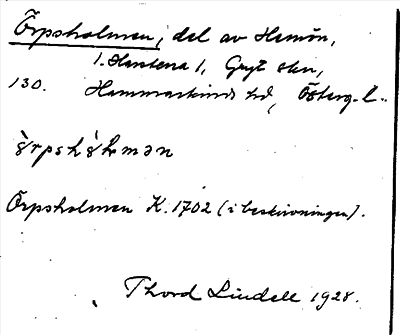 Örpsholmen, del av Hemön,
1. Hentena 1, Gryt skn,
130. Hammarkinds hd, Österg. l.
Örpsholmen K. 1702 (i beskrivningen).
Thord Lindell 1928.